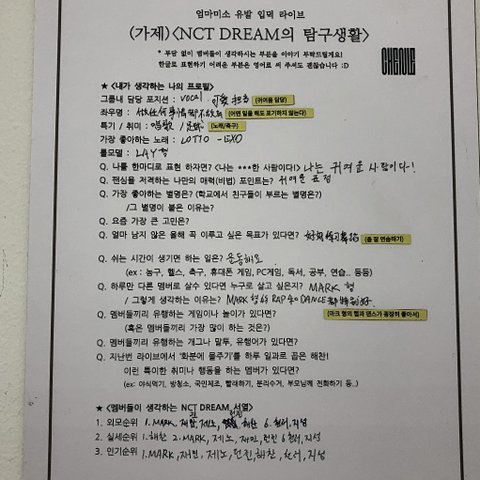 엄마미소 유발 입덕 라이브
(가제)<NCT DREAM의 탐구생활>
* 부담 없이 멤버들이 생각하시는 부분을 이야기 부탁드릴게요!
한글로 표현하기 어려운 부분은 영어로 써 주셔도 괜찮습니다 :D
CHENLE
★ <내가 생각하는 나의 프로필>
그룹내 담당 포지션 : VOCAL 可愛 担当 (귀여움 담당)
좌우명 : 做任何事情都不放弃 (어떤 일을 해도 포기하지 않는다)
특기 / 취미 : 唱歌 / 足球 (노래/축구)
가장 좋아하는 노래 : LOTTO - EXO
롤모델 : LAY형
Q. 나를 한마디로 표현 하자면? <나는 ***한 사람이다!> 나는 귀여운 사람이다!
Q. 팬심을 저격하는 나만의 매력(비법) 포인트는? 귀여운 표정
Q. 가장 좋아하는 별명은? (학교에서 친구들이 부르는 별명은?)
/그 별명이 붙은 이유는?
Q. 요즘 가장 큰 고민은?
Q. 얼마 남지 않은 올해 꼭 이루고 싶은 목표가 있다면? 好好练习舞蹈 (춤 잘 연습하기)
Q. 쉬는 시간이 생기면 하는 일은? 운동해요
(ex : 농구, 헬스, 축구, 휴대폰 게임, PC게임, 독서, 공부, 연습.. 등등)
Q. 하루만 다른 멤버로 살수 있다면 누구로 살고 싶은지? MARK 형
/ 그렇게 생각하는 이유는? MARK 형 的 RAP 和 DANCE 都特别好
Q. 멤버들끼리 유행하는 게임이나 놀이가 있다면? (마크 형의 랩과 댄스가 굉장히 좋아서)
(혹은 멤버들끼리 가장 많이 하는 것은?)
Q. 멤버들끼리 유행하는 개그나 말투, 유행어가 있다면?
Q. 지난번 라이브에서 '화분에 물주기'를 하루 일과로 꼽은 해찬!
이런 특이한 취미나 행동을 하는 멤버가 있다면?
(ex: 야식먹기, 방청소, 국민체조, 빨래하기, 분리수거, 부모님께 전화하기 등..)
★ <멤버들이 생각하는 NCT DREAM 서열>
1. 외모순위 1. MARK, 재민, 제노, 런쥔, 해찬 6. 천러, 지성
2. 실세순위 1. 해찬 2. MARK, 제노, 재민, 런쥔 6 천러, 지성
3. 인기순위 1. MARK, 재민, 제노, 런쥔, 해찬, 천러, 지성